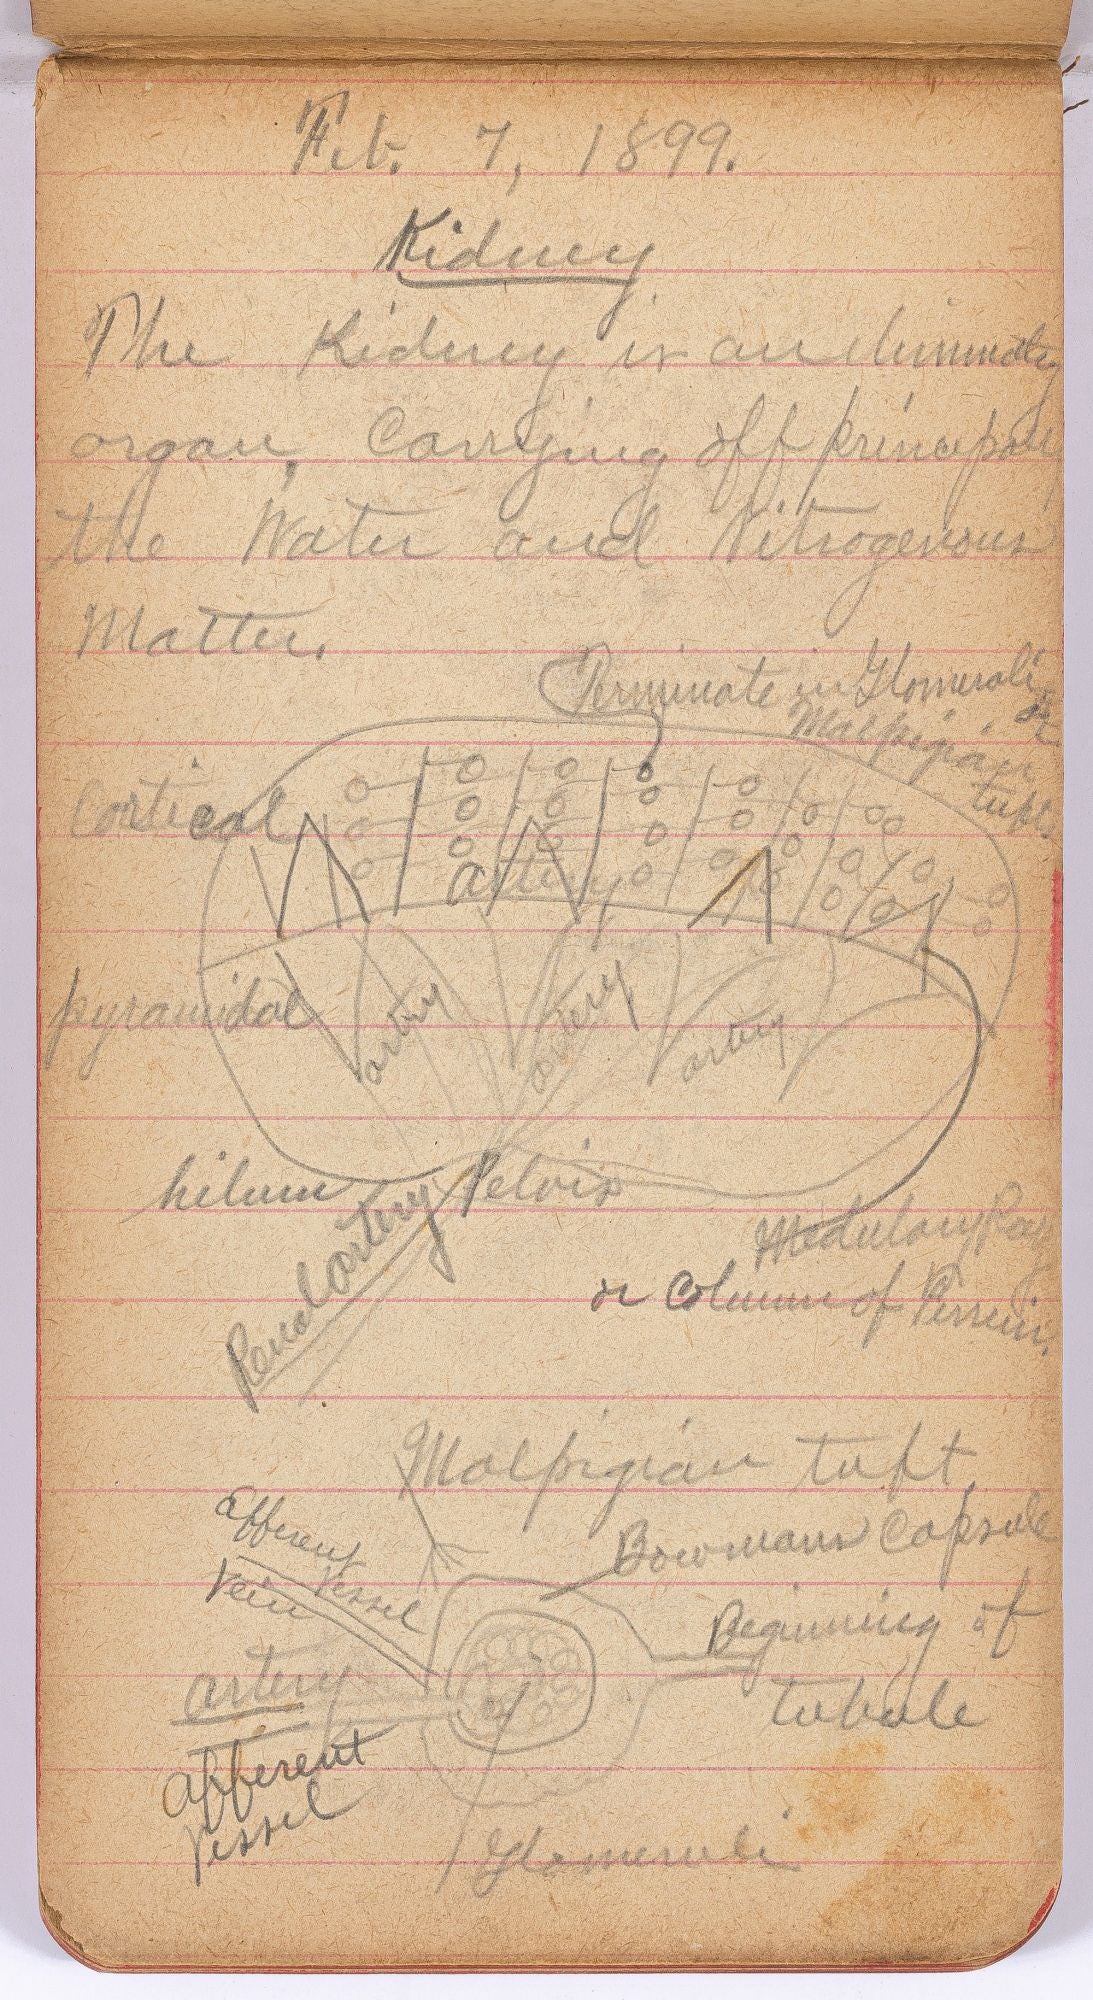 Feb. 7, 1899.
Kidney
The Kidney is an eliminating
organ, Carrying off principal
the Water and Nitrogenous
Matter.
Terminate in Glomeruli
or
Malpigian
tuft.
Cortical
artery
pyramidal
artery
artery
artery
hilum
Pelvis
Renal artery
Medulary Ray
or Column of Ferrein.
Malpigian tuft
afferent
Vessel
Vein
Bowmans Capsule
Beginning of
tubule
artery
afferent
Vessel
Glomeruli